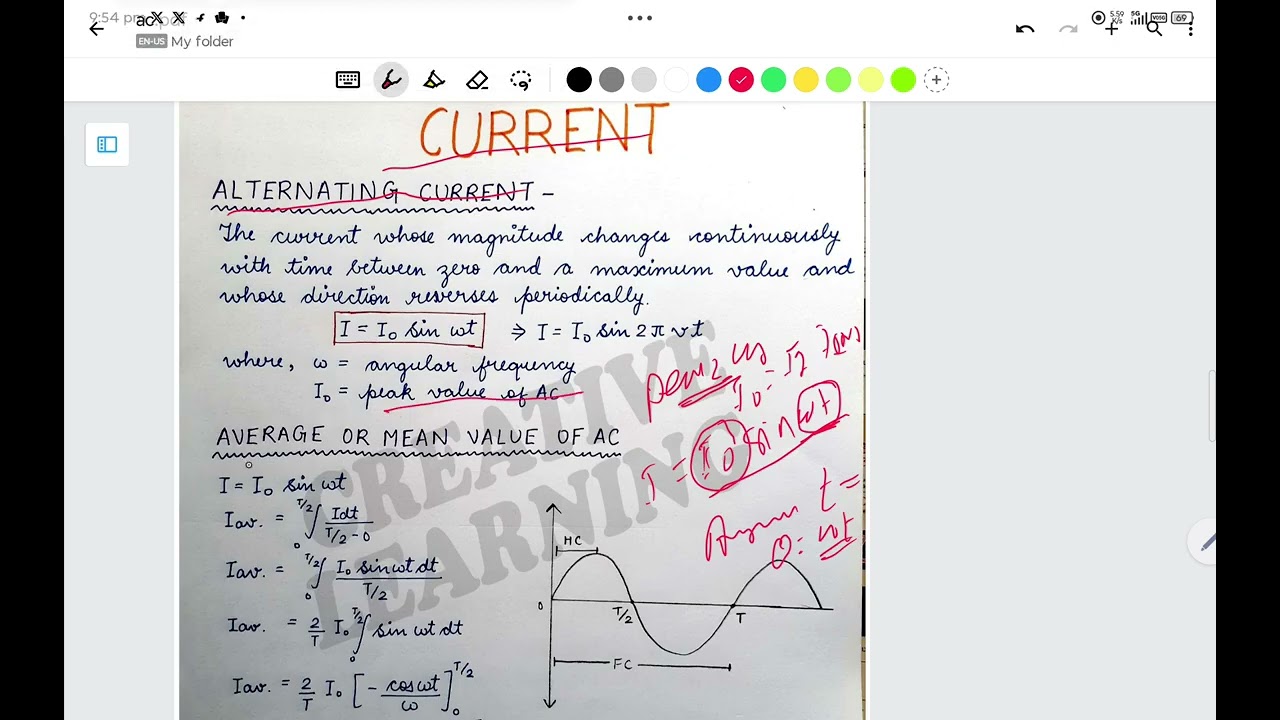 9:54 pm
ac.pdf
5.59 K/s 5G 69
EN-US My folder
CURRENT
ALTERNATING CURRENT -
The current whose magnitude changes continuously
with time between zero and a maximum value and
whose direction reverses periodically.
I = I₀ sin ωt ⇒ I = I₀ sin 2πνt
where, ω = angular frequency
I₀ = peak value of AC
I = I₀ sin ωt
θ = ωt
AVERAGE OR MEAN VALUE OF AC
I = I₀ sin ωt
Iav. = ₀∫^T/2 Idt / T/2 - 0
Iav. = ₀∫^T/2 I₀ sin ωt dt / T/2
Iav. = 2/T I₀ ₀∫^T/2 sin ωt dt
Iav. = 2/T I₀ [- cos ωt / ω]₀^T/2
HC
0 T/2 T
FC
CREATIVE
LEARNING